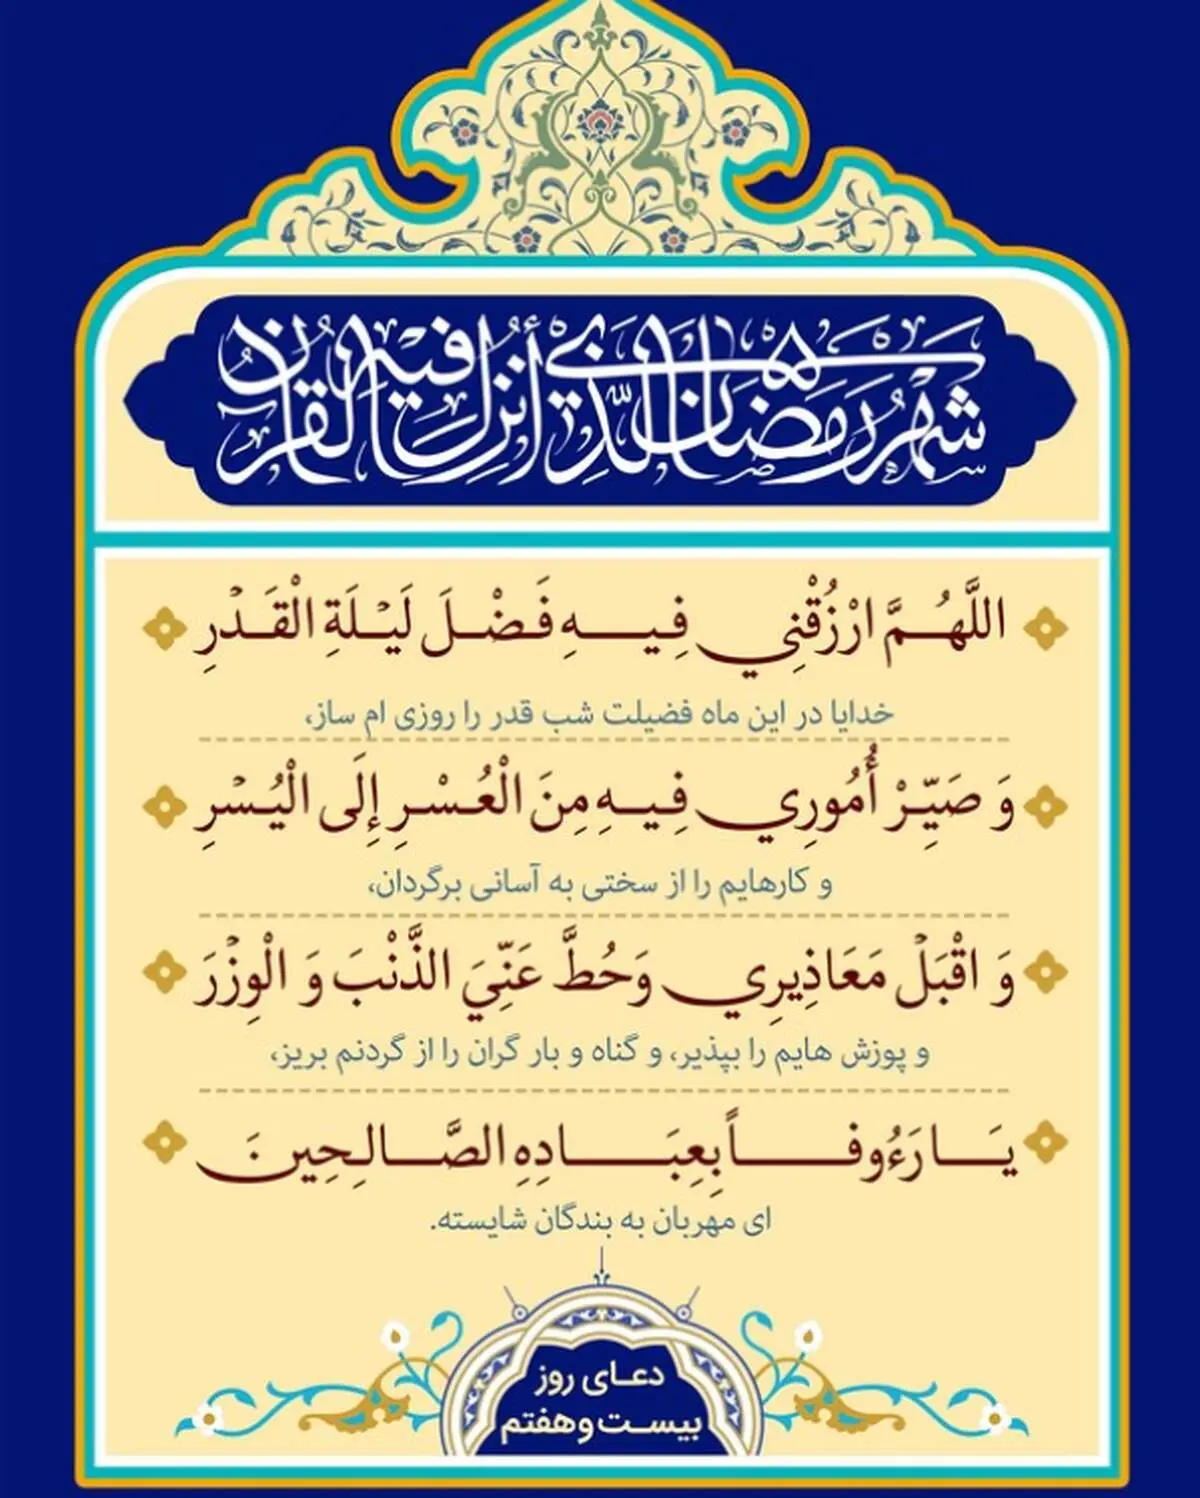 شهر رمضان الذي أنزل فيه القرآن
اللَّهُمَّ ارْزُقْنِي فِيهِ فَضْلَ لَيْلَةِ الْقَدْرِ
خدایا در این ماه فضیلت شب قدر را روزی ام ساز،
وَ صَيِّرْ أُمُورِي فِيهِ مِنَ الْعُسْرِ إِلَى الْيُسْرِ
و کارهایم را از سختی به آسانی برگردان،
وَ اقْبَلْ مَعَاذِيرِي وَحُطَّ عَنِّيَ الذَّنْبَ وَ الْوِزْرَ
و پوزش هایم را بپذیر، و گناه و بار گران را از گردنم بریز،
يَا رَءُوفاً بِعِبَادِهِ الصَّالِحِينَ
ای مهربان به بندگان شایسته.
دعای روز
بیست و هفتم